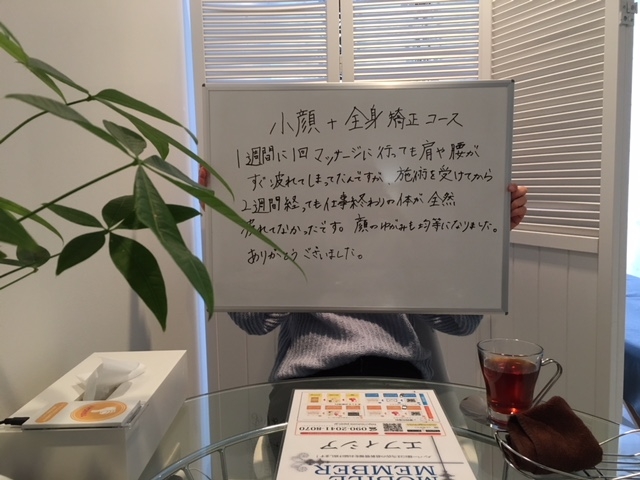 小顔 + 全身矯正コース
1週間に1回マッサージに行っても肩や腰が
すぐ疲れてしまってたんですが、施術を受けてから
2週間経っても仕事終わりの体が全然
疲れてなかったです。顔のゆがみも均等になりました。
ありがとうございました。
090 2041-8070
エフィシア
MOBILE
MEMBER